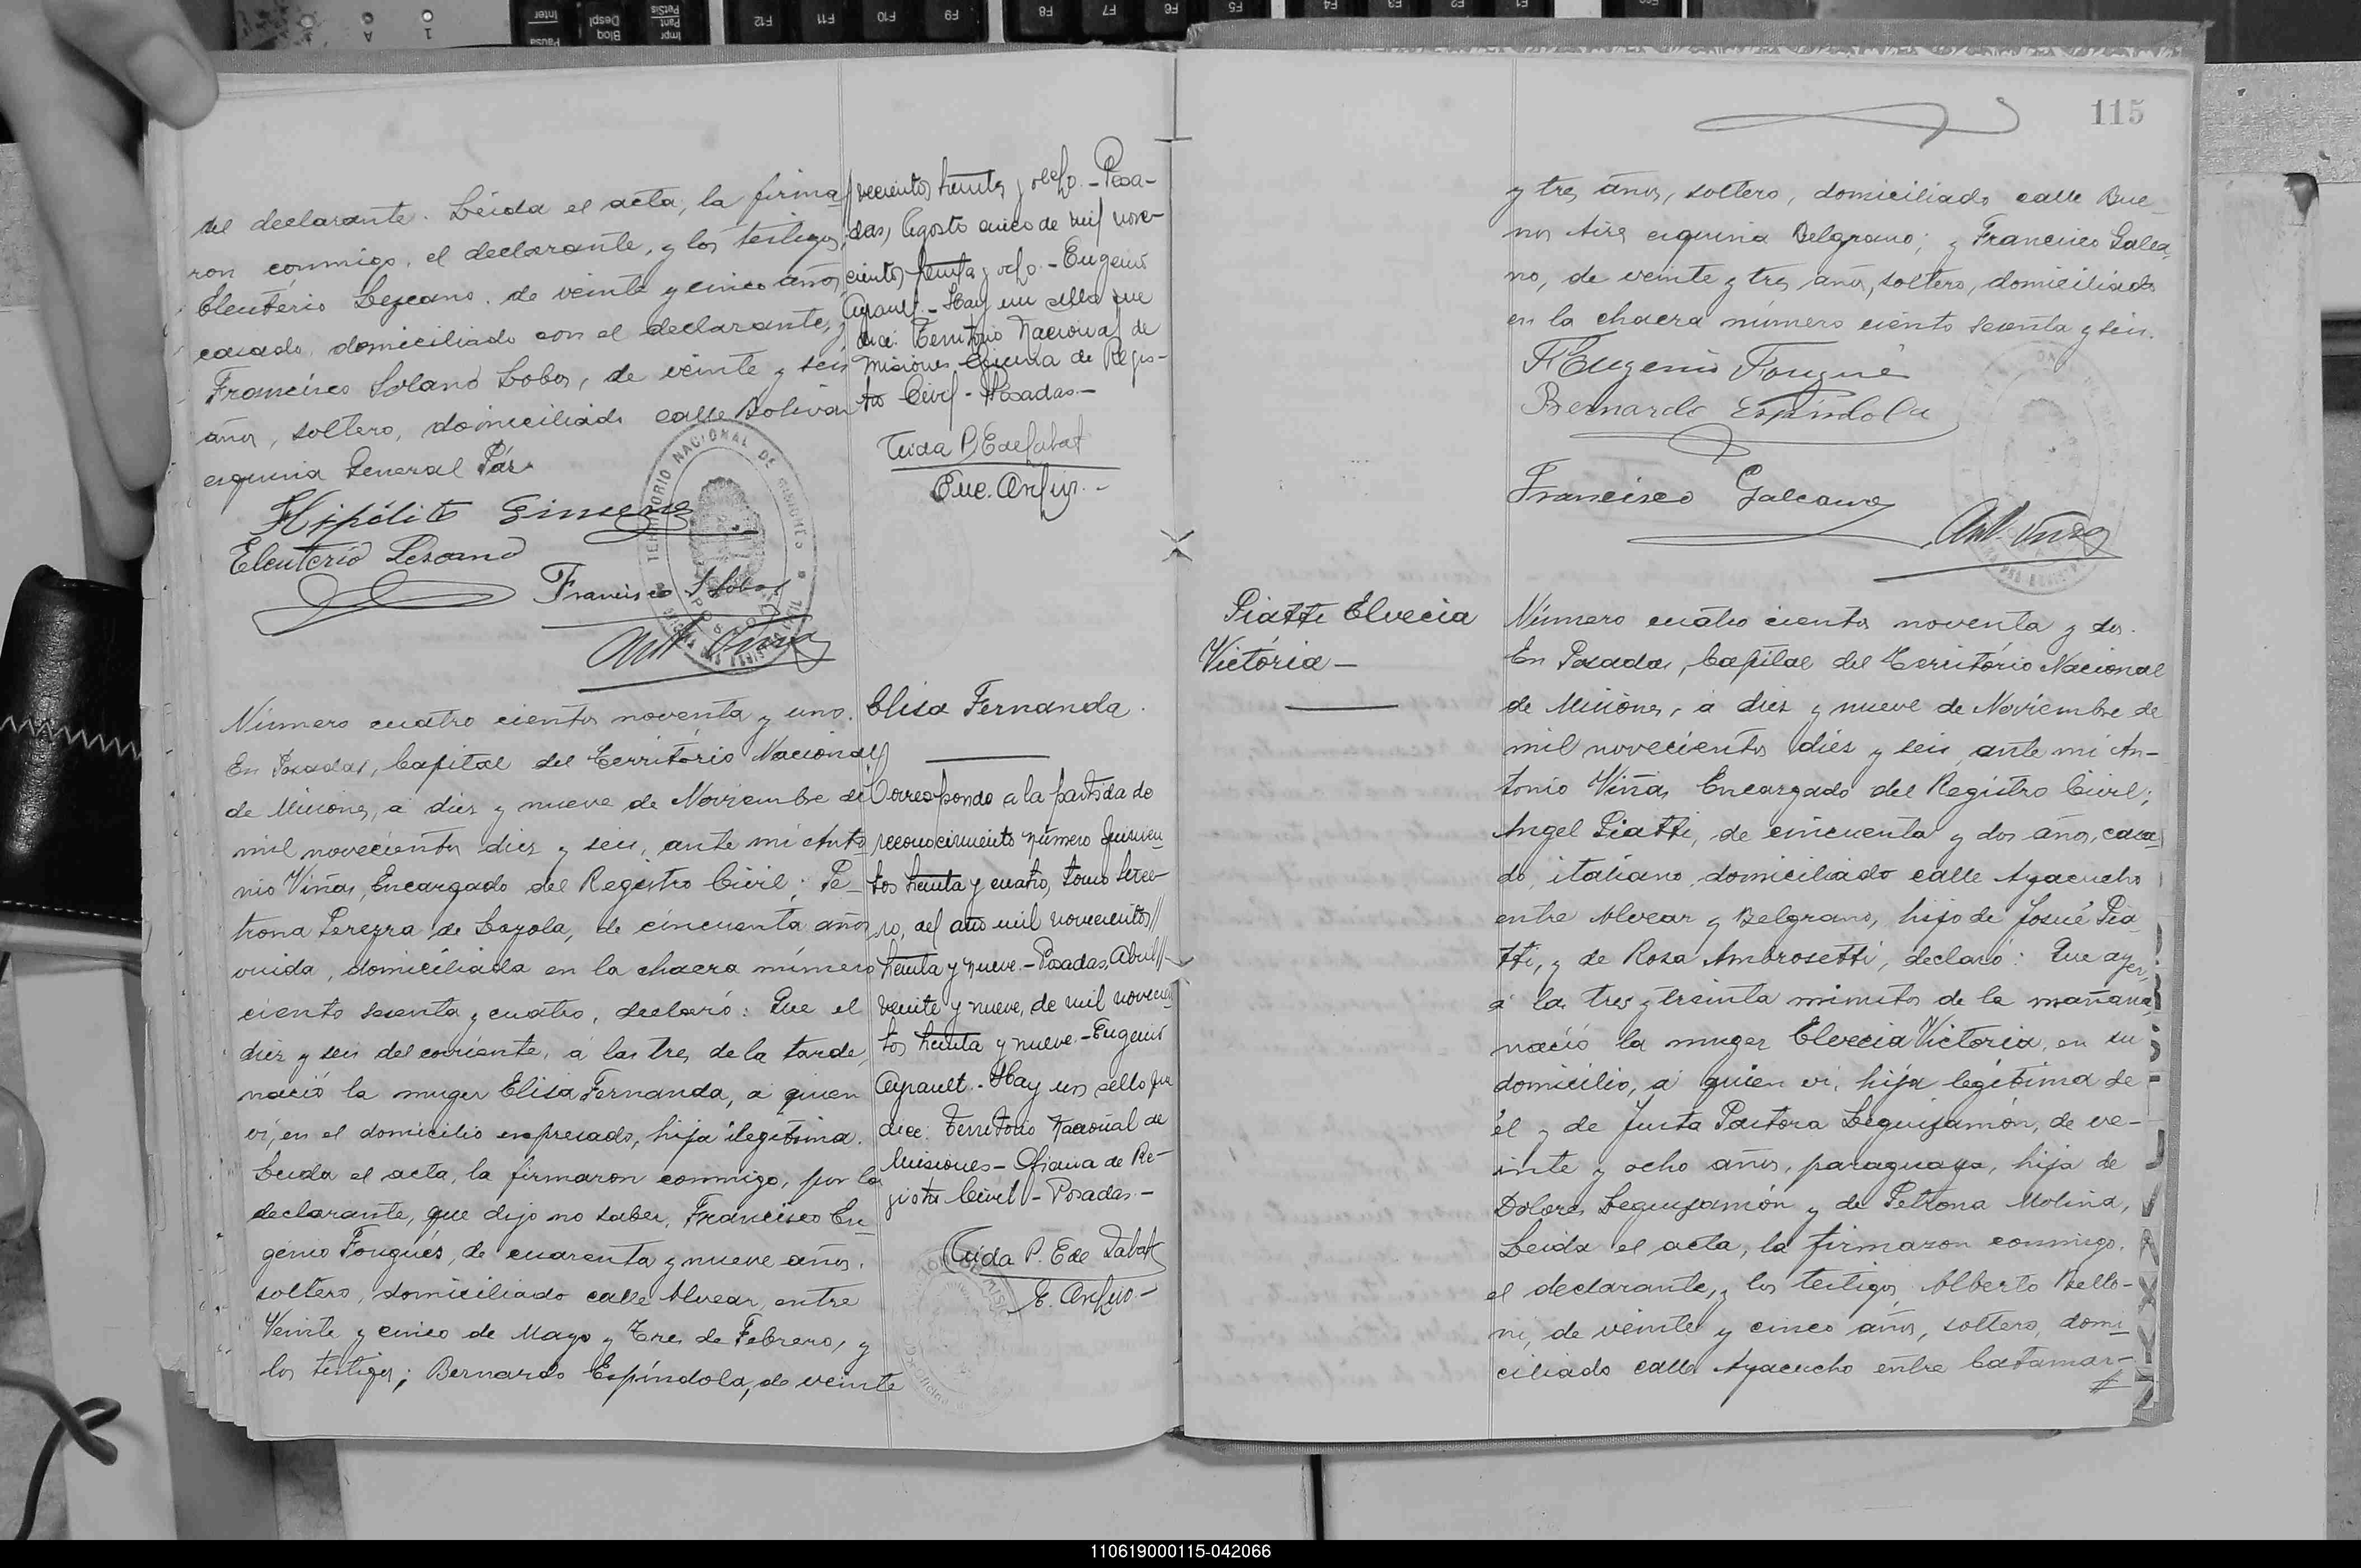 del declarante. Leida el acta, la firma
ron conmigo, el declarante, y los testigos,
Eleuterio Lezcano, de veinte y cinco años,
casado, domiciliado con el declarante, y
Francisco Solano Lobos, de veinte y seis
años, soltero, domiciliado calle Bolivar
esquina General Páz.
Hipólito Gimenez
Eleuterio Lescano
Francisco S Lobos
Ant. Viñas
vecientos treinta y ocho.-Posa-
das, Agosto cinco de mil nove-
cientos treinta y ocho.-Eugenio
Ayrault.-Hay un sello que
dice: Territorio Nacional de
Misiones Oficina de Regis-
tro Civil-Posadas-
Enc. Archiv.-
Número cuatro cientos noventa y uno.
En Posadas, Capital del Territorio Nacional
de Misiones, á diez y nueve de Noviembre de
mil novecientos diez y seis, ante mi Anto
nio Viñas, Encargado del Registro Civil; Pe-
trona Pereyra de Loyola, de cincuenta años
viuda, domiciliada en la chacra número
ciento sesenta y cuatro, declaró: Que el
diez y seis del corriente, á las tres de la tarde,
nació la muger Elisa Fernanda, a quien
vi, en el domicilio expresado, hija ilegitima.
Leida el acta, la firmaron conmigo, por la
declarante, que dijo no saber, Francisco Eu-
genio Fougués, de cuarenta y nueve años,
soltero, domiciliado calle Alvear, entre
Veinte y cinco de Mayo y Tres de Febrero, y
los testigos; Bernardo Espíndola, de veinte
Elisa Fernanda.
Corresponde a la partida de
reconocimiento número quinien
tos treinta y cuatro, tomo terce-
ro, del año mil novecientos//
treinta y nueve.-Posadas, Abril//
veinte y nueve, de mil novecien
tos treinta y nueve.-Eugenio
Ayrault.-Hay un sello que
dice: Territorio Nacional de
Misiones-Oficina de Re-
gistro Civil-Posadas.-
E. Archivo-
115
y tres años, soltero, domiciliado calle Bue-
nos Aires esquina Belgrano; y Francisco Galea
no, de veinte y tres años, soltero, domiciliado
en la chacra número ciento sesenta y seis.
F Eugenio Fougué
Bernardo Espíndola
Francisco Galeano
Ant. Viñas
Piatti Elvecia
Victória-
Número cuatro cientos noventa y dos.
En Posadas, Capital del Territorio Nacional
de Misiones, á diez y nueve de Noviembre de
mil novecientos diez y seis, ante mi An-
tonio Viñas Encargado del Registro Civil;
Angel Piatti, de cincuenta y dos años, casa
do, italiano, domiciliado calle Ayacucho
entre Alvear y Belgrano, hijo de Josué Pia
tti, y de Rosa Ambrosetti, declaró: Que ayer
á las tres y treinta minutos de la mañana
nació la muger Elvecia Victoria, en su
domicilio, á quien vi, hija legitima de
él y de Justa Pastora Leguisamón, de ve-
inte y ocho años, paraguaya, hija de
Dolores Leguisamón y de Petrona Molina,
Leida el acta, la firmaron conmigo,
el declarante, y los testigos, Alberto Bello-
ni, de veinte y cinco años, soltero, domi-
ciliado calle Ayacucho entre Catamar-
110619000115-042066